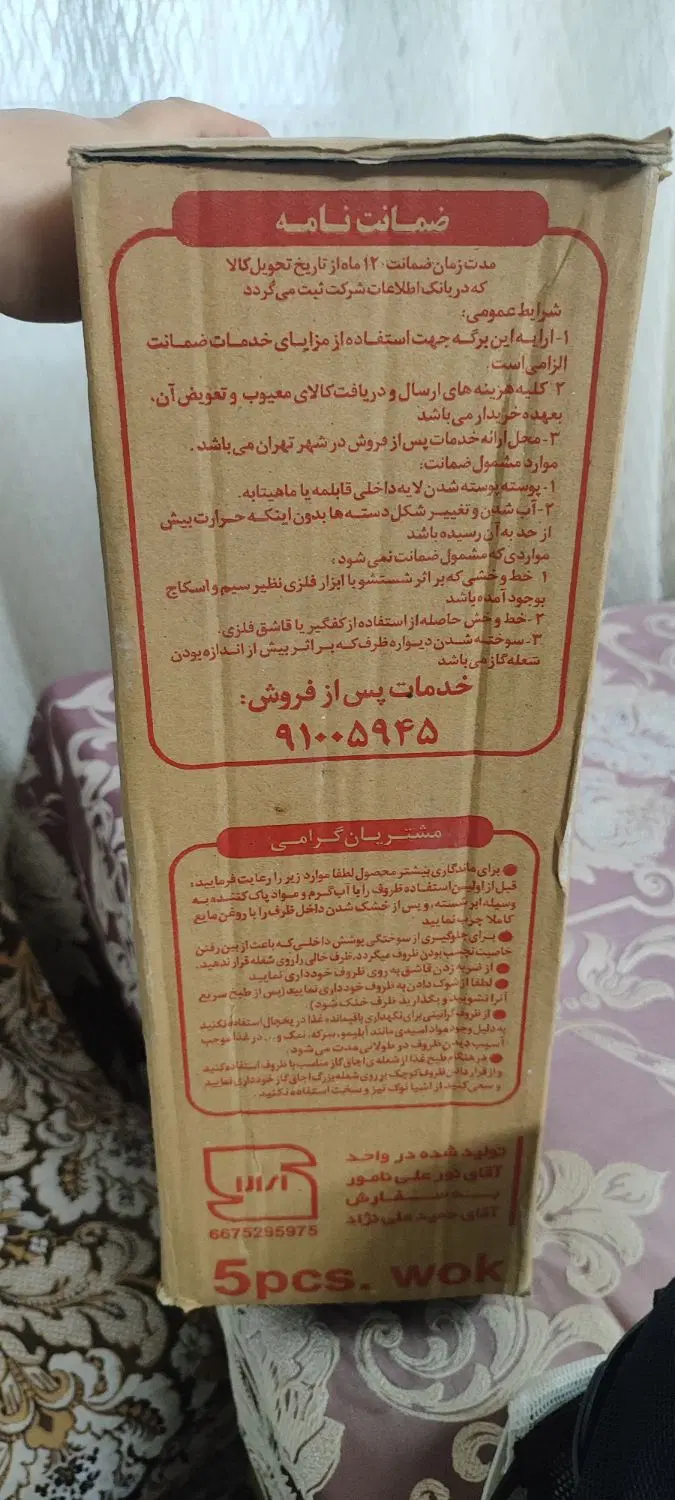 ضمانت نامه
مدت زمان ضمانت ۱۲ ماه از تاریخ تحویل کالا
که در بانک اطلاعات شرکت ثبت می گردد
شرایط عمومی:
۱- ارایه این برگه جهت استفاده از مزایای خدمات ضمانت
الزامی است.
۲ کلیه هزینه های ارسال و دریافت کالای معیوب و تعویض آن،
بعهده خریدار می باشد
۳- محل ارائه خدمات پس از فروش در شهر تهران می باشد.
موارد مشمول ضمانت:
۱- پوسته پوسته شدن لایه داخلی قابلمه یا ماهیتابه.
۲- آب شدن و تغییر شکل دسته ها بدون اینکه حرارت بیش
از حد به آن رسیده باشد
مواردی که مشمول ضمانت نمی شود:
۱ خط و خشی که بر اثر شستشو با ابزار فلزی نظیر سیم و اسکاج
بوجود آمده باشد
۲- خط و خش حاصله از استفاده از کفگیر یا قاشق فلزی.
۳- سوخته شدن دیواره ظرف که بر اثر بیش از اندازه بودن
شعله گاز می باشد
خدمات پس از فروش:
۹۱۰۰۵۹۴۵
مشتریان گرامی
● برای ماندگاری بیشتر محصول لطفا موارد زیر را رعایت فرمایید:
قبل از اولین استفاده ظروف را با آب گرم و مواد پاک کننده به
وسیله ابر شسته، و پس از خشک شدن داخل ظرف را با روغن مایع
کاملا چرب نمایید
● برای جلوگیری از سوختگی پوشش داخلی که باعث از بین رفتن
خاصیت نچسب بودن ظروف میگردد، ظرف خالی را روی شعله قرار ندهید.
● از ضربه زدن قاشق به روی ظروف خودداری نمایید
● لطفا از شوک دادن به ظروف خودداری نمایید (پس از طبخ سریع
آنرا نشویید و بگذارید ظرف خنک شود).
● از ظروف گرانیتی برای نگهداری باقیمانده غذا در یخچال استفاده نکنید
به دلیل وجود مواد اسیدی مانند آبلیمو، سرکه، نمک و... در غذا موجب
آسیب دیدن ظروف در طولانی مدت می شود
● در هنگام طبخ غذا از شعله ی اجاق گاز مناسب با ظروف استفاده کنید
و از قرار دادن ظروف کوچک بر روی شعله بزرگ اجاق گاز خودداری نمایید
و سعی کنید از اشیا نوک تیز و سخت استفاده نکنید.
تولید شده در واحد
آقای نور علی نامور
به سفارش
آقای حمید علی نژاد
6675295975
5pcs. wok